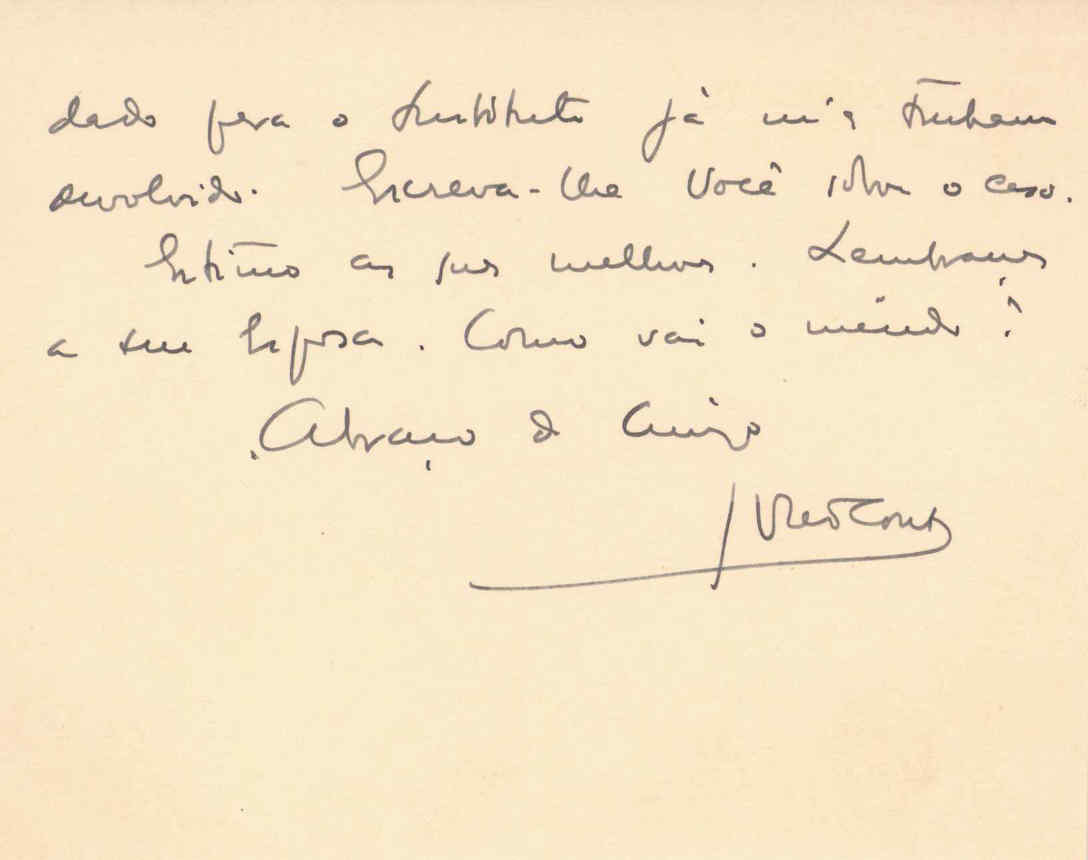 dado para o Instituto já m'a tinham
devolvido. Escreva-lhe Você sobre o caso.
Estimo as sus melhoras. Lembranças
a sua Esposa. Como vai o miúdo?
Abraço do Amigo